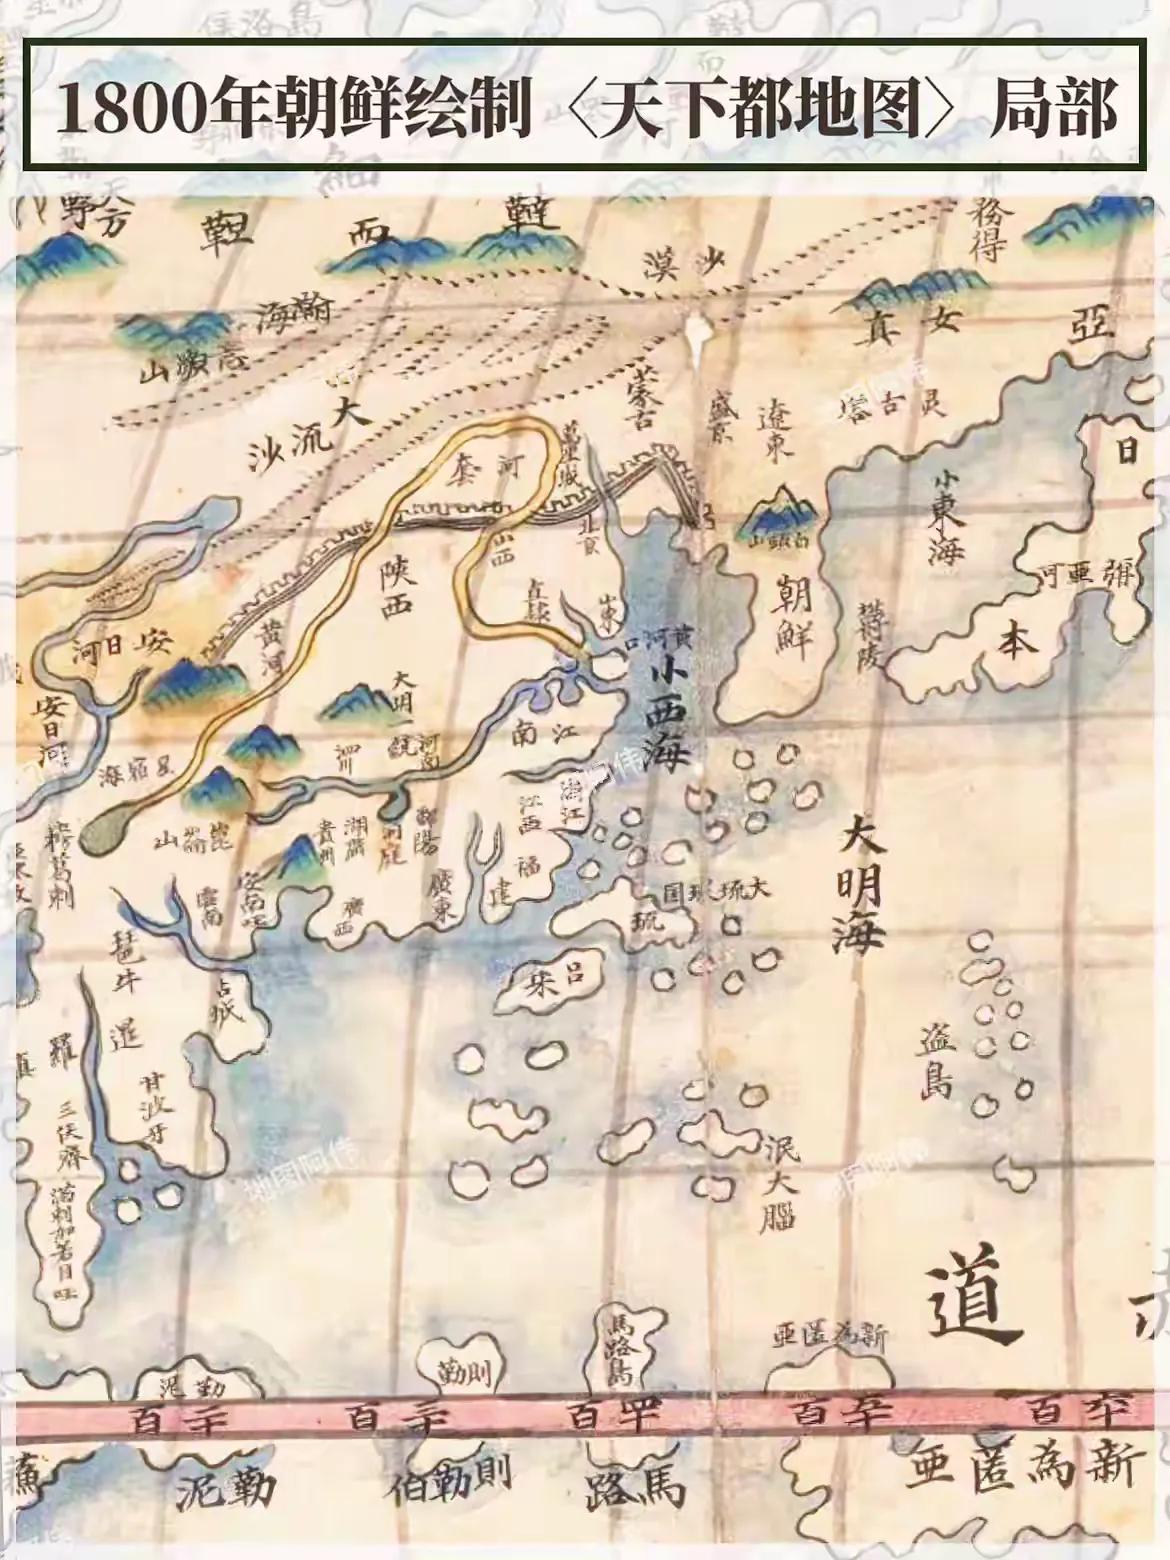 1800年朝鲜绘制〈天下都地图〉局部
野
天方
韃
而
靼
沙漠
務得
瀚海
女真
亞
山
蒙古
盛京
遼東
灵古塔
大流沙
日
河套
小東海
北京
山西
白頭山
陝西
朝鮮
河亜弥
直隸
山東
蔚陵
本
黃河
黃河口
安日河
小西海
大明一統
江南
安日河
泗川
河南
星宿海
浙江
江西
大明海
崑崙山
貴州
湖廣
洞庭
鄱陽
福建
廣東
廣西
雲南
安南
大琉球国
琉
琶牛
呂宋
占城
暹羅
盗島
甘波牙
三伏齊
泯大腦
満剌加
道
馬路島
新為匿亜
則勒
勒泥
百二十
百三十
百四十
百五十
百六十
勒泥
則勒伯
馬路
新為匿亜
地图阿伟